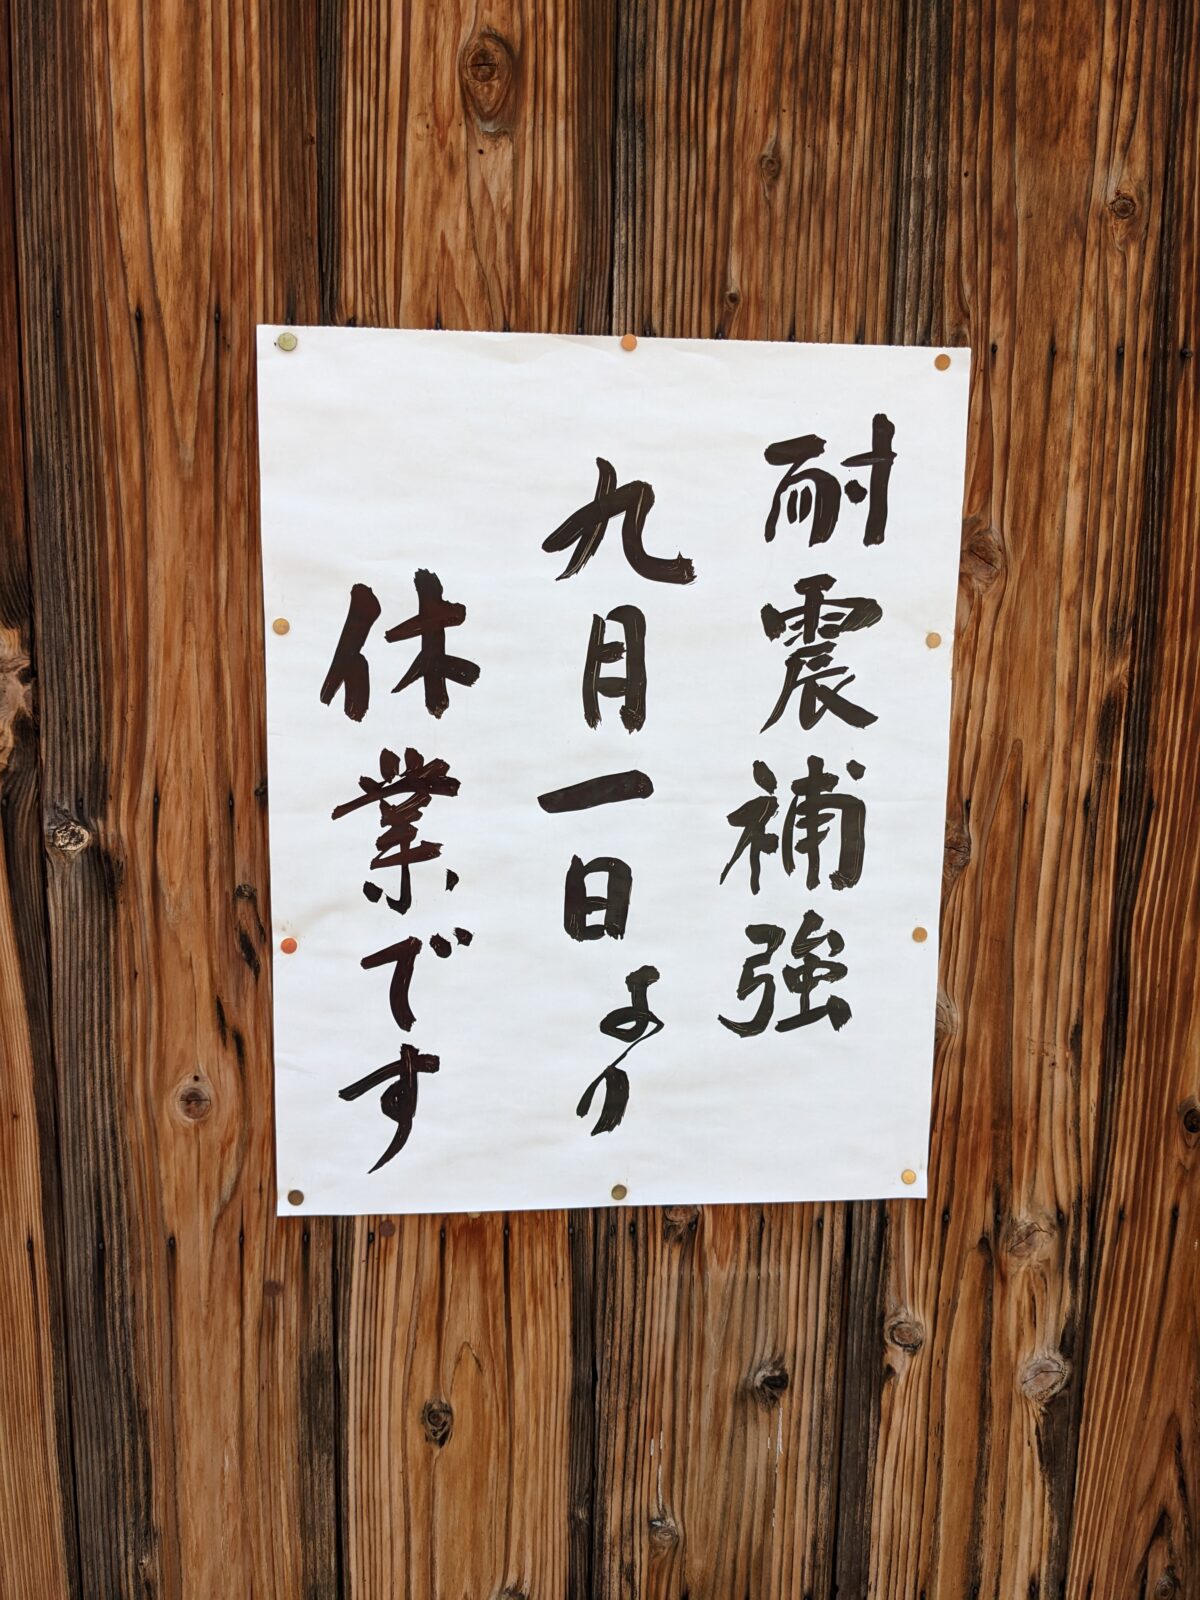 耐震補強
九月一日より
休業です